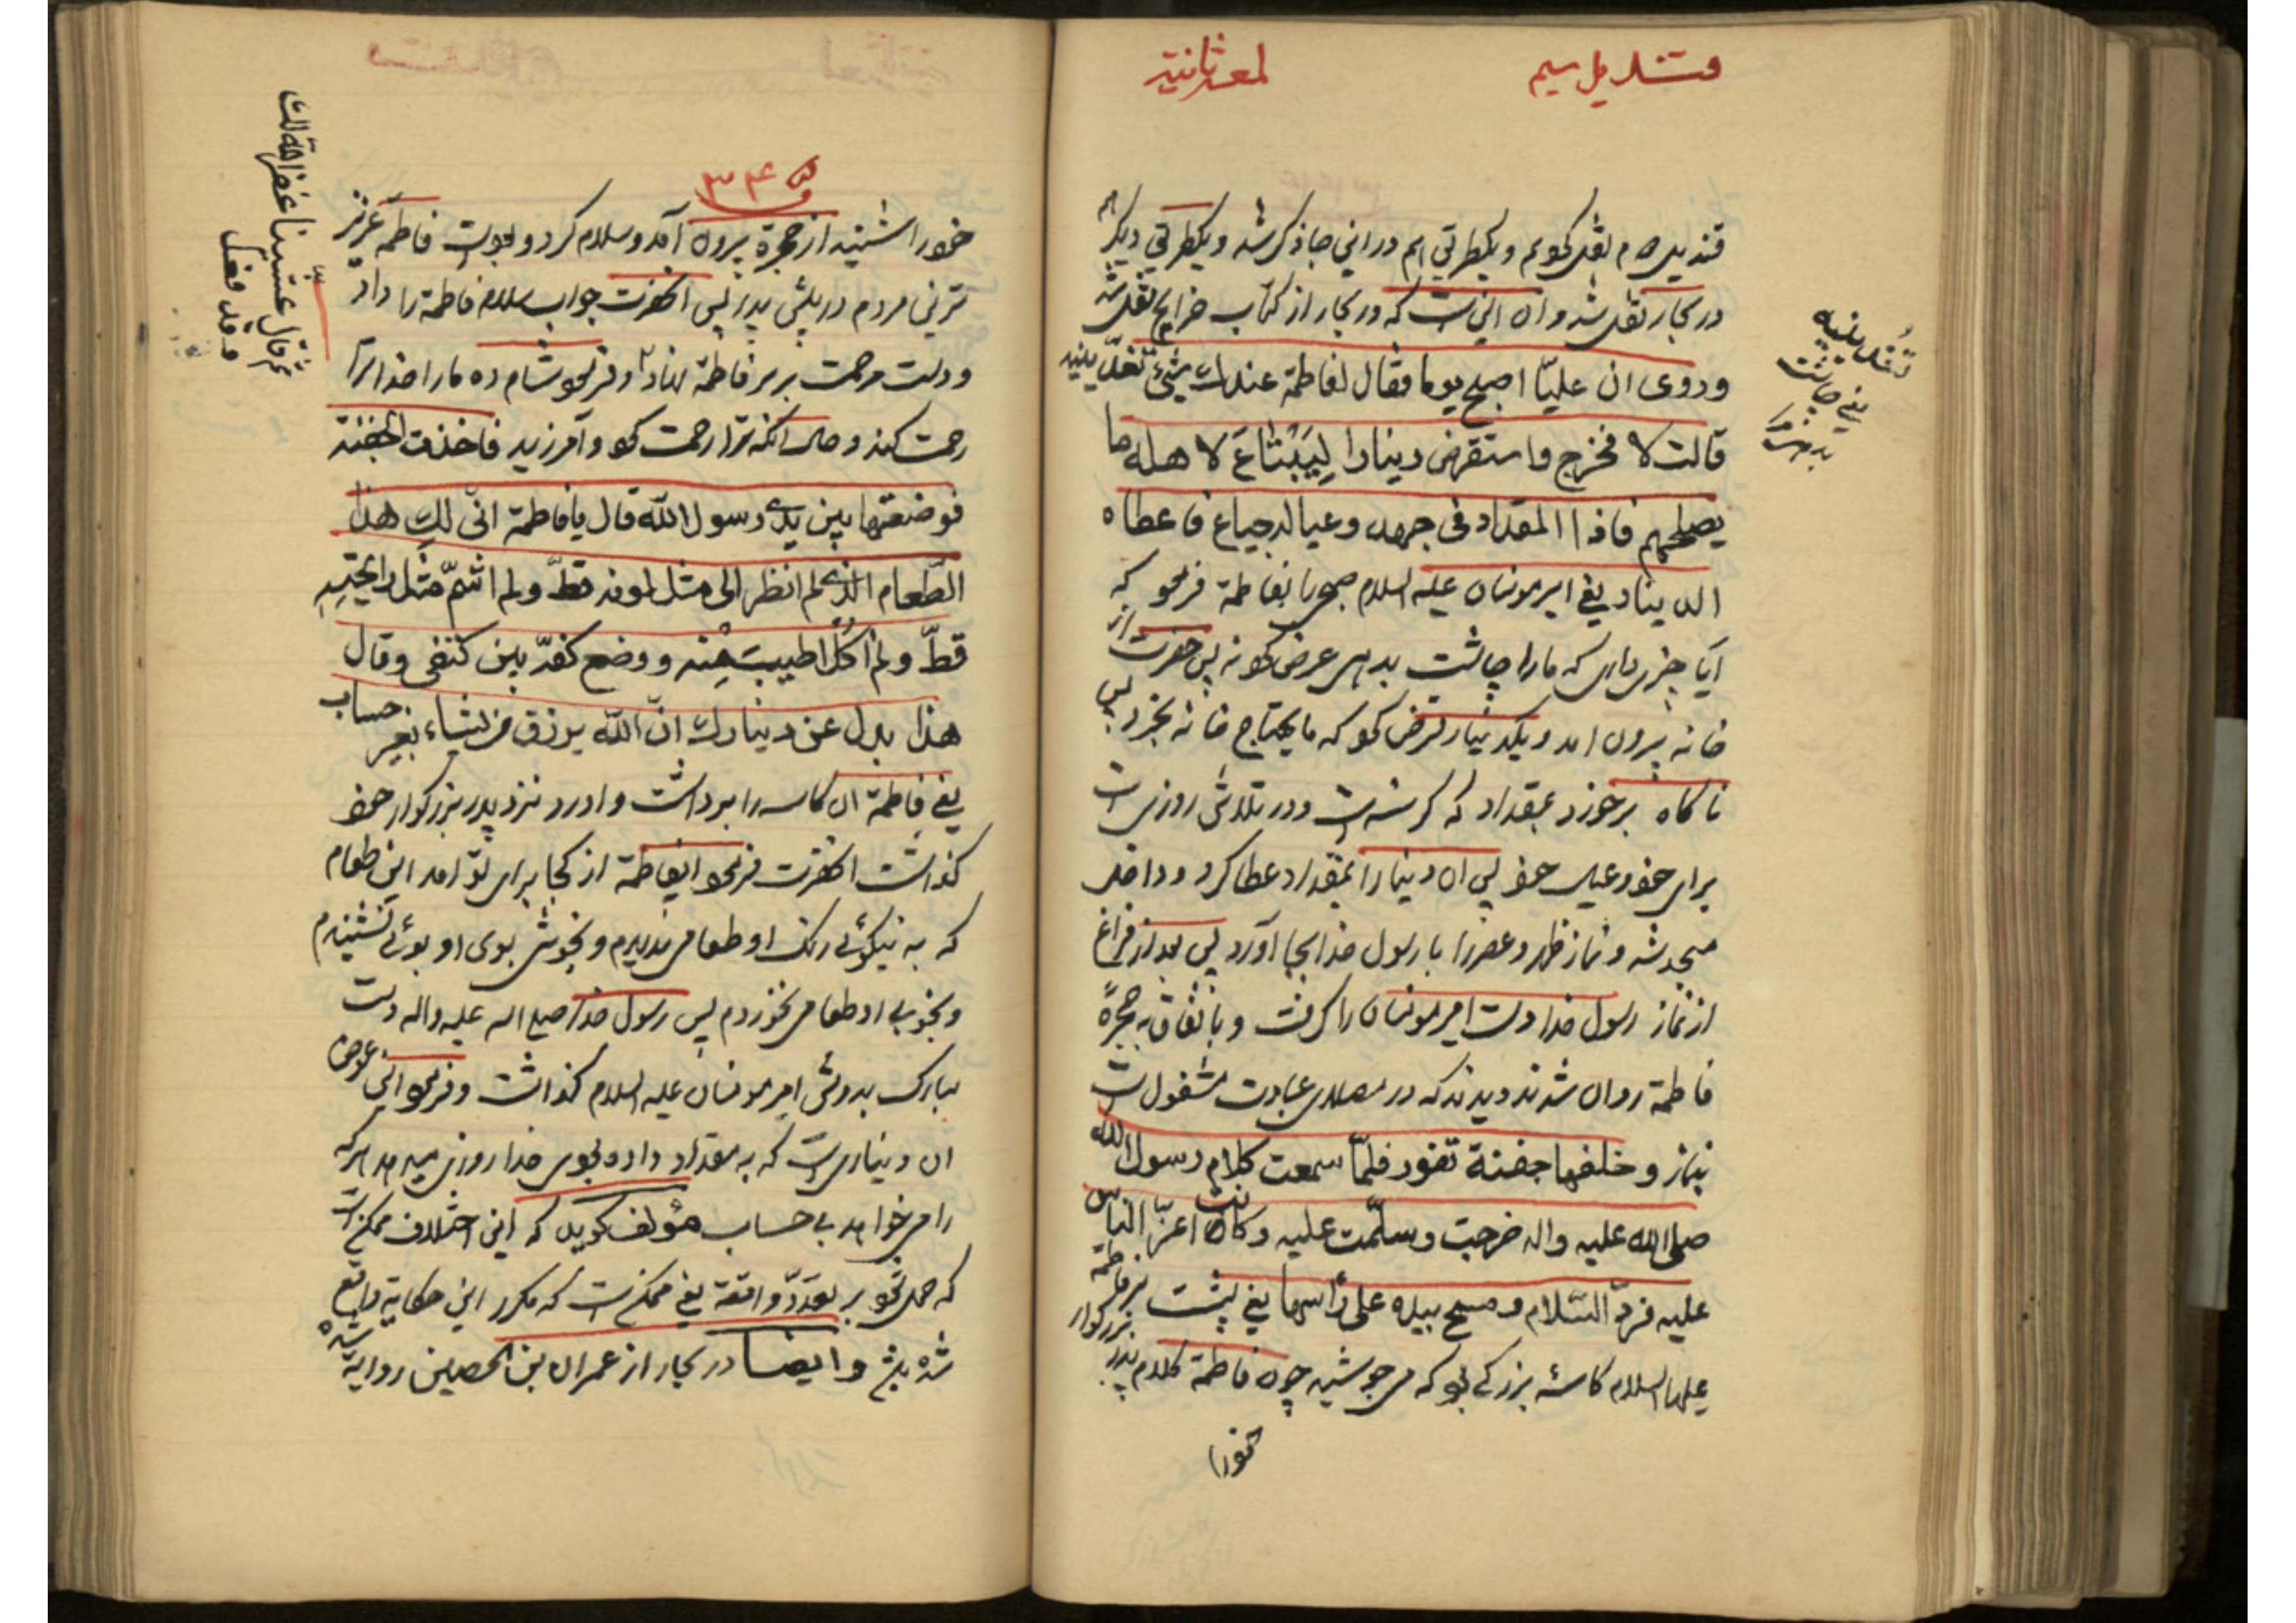 قندیل سیم
لمعه ثانیة
قندیل ۳۰م نقل کویم و یکطریق هم در اینجا ذکر شد و یکطریق دیکر هم
در بحار نقل شد و ان اینست که در بحار از کتاب خرایج نقل شد
وروی ان علیّا اصبح یوما فقال لفاطمة عندك شیئ تغدّینیه
تغدّینیه
یعنی چاشت
قالت لا فخرج واستقرض دینارا لِیَبْتاعَ لاهله ما
یصلحهم فاذا المقداد فی جهد وعیاله جیاع فاعطاه
الدینار یعنی امیرمؤمنان علیه السلام صبحی بفاطمة فرمو که
آیا چیزی داری که مارا چاشت بدهی عرض کو نه پس حضرت از
خانه بیرون امد و یکدینار قرض کو که مایحتاج خانه بخرد پس
ناکاه برخورد بمقداد که کرسنه است و در تلاش روزی است
برای خو وعیال خو پس ان دینار را بمقداد عطا کرد و داخل
مسجد شد و نماز ظهر و عصر را با رسول خدا بجا آورد پس بعد از فراغ
از نماز رسول خدا دست امیرمؤمنان را کرفت و باتفاق به حجرۀ
فاطمة روان شدند دیدند که در مصلای عبادت مشغول است
بنماز وخلفها جفنة تفور فلمّا سمعت کلام رسول الله
صلی الله علیه واله خرجت وسلّمت علیه وکانت اعزّ الناس
علیه فردّ السّلام ومسح بیده علی رأسها یعنی پشت سر فاطمه
علیها السلام کاسۀ بزرکی بو که میجوشید چون فاطمة کلام پدر بزرکوار
خورا
ق ۳۴
خورا شنید از حجرة بیرون آمد و سلام کرد و بود فاطمة عزیز
ترین مردم در پیش پدر پس انحضرت جواب سلام فاطمة را داد
ودست مرحمت بر سر فاطمة نهاد و فرمو شام ده مارا خدا ترا
رحمت کند وحال انکه ترا رحمت کو و آمرزید فاخذت الجفنة
ثم قال عشّینا غفر الله لك
وقد فعل
فوضعتها بین یدی رسول الله قال یا فاطمة انّی لكِ هذا
الطّعام الذی لم انظر الی مثل لونه قطّ ولم اشمّ مثل رایحتهِ
قطّ ولم اکُل اطیبَ مِنه ووضع کفّه بین کتفی وقال
هذا بدل عن دینارك انّ الله یرزق من یشاء بغیر حساب
یعنی فاطمة ان کاسه را برداشت و اورد نزد پدر بزرکوار خو
کذاشت انحضرت فرمو ایفاطمة از کجا برای تو امد این طعام
که به نیکوئی رنک او طعامی ندیدم و بخوشی بوی او بوئی نشنیدم
وبخوبی او طعامی نخوردم پس رسول خدا صلی اله علیه واله دست
مبارک بدوش امیرمؤمنان علیه السلام کذاشت وفرمو این عوض
ان دیناریست که به مقداد داده بوی خدا روزی میدهد هرکه
را میخواهد بی حساب مؤلف کوید که این اختلاف ممکن است
که حمل شو بر تعدّد واقعة یعنی ممکن است که مکرر این حکایة واقع
شده باشد و ایضا در بحار از عمران بن الحصین روایة شده